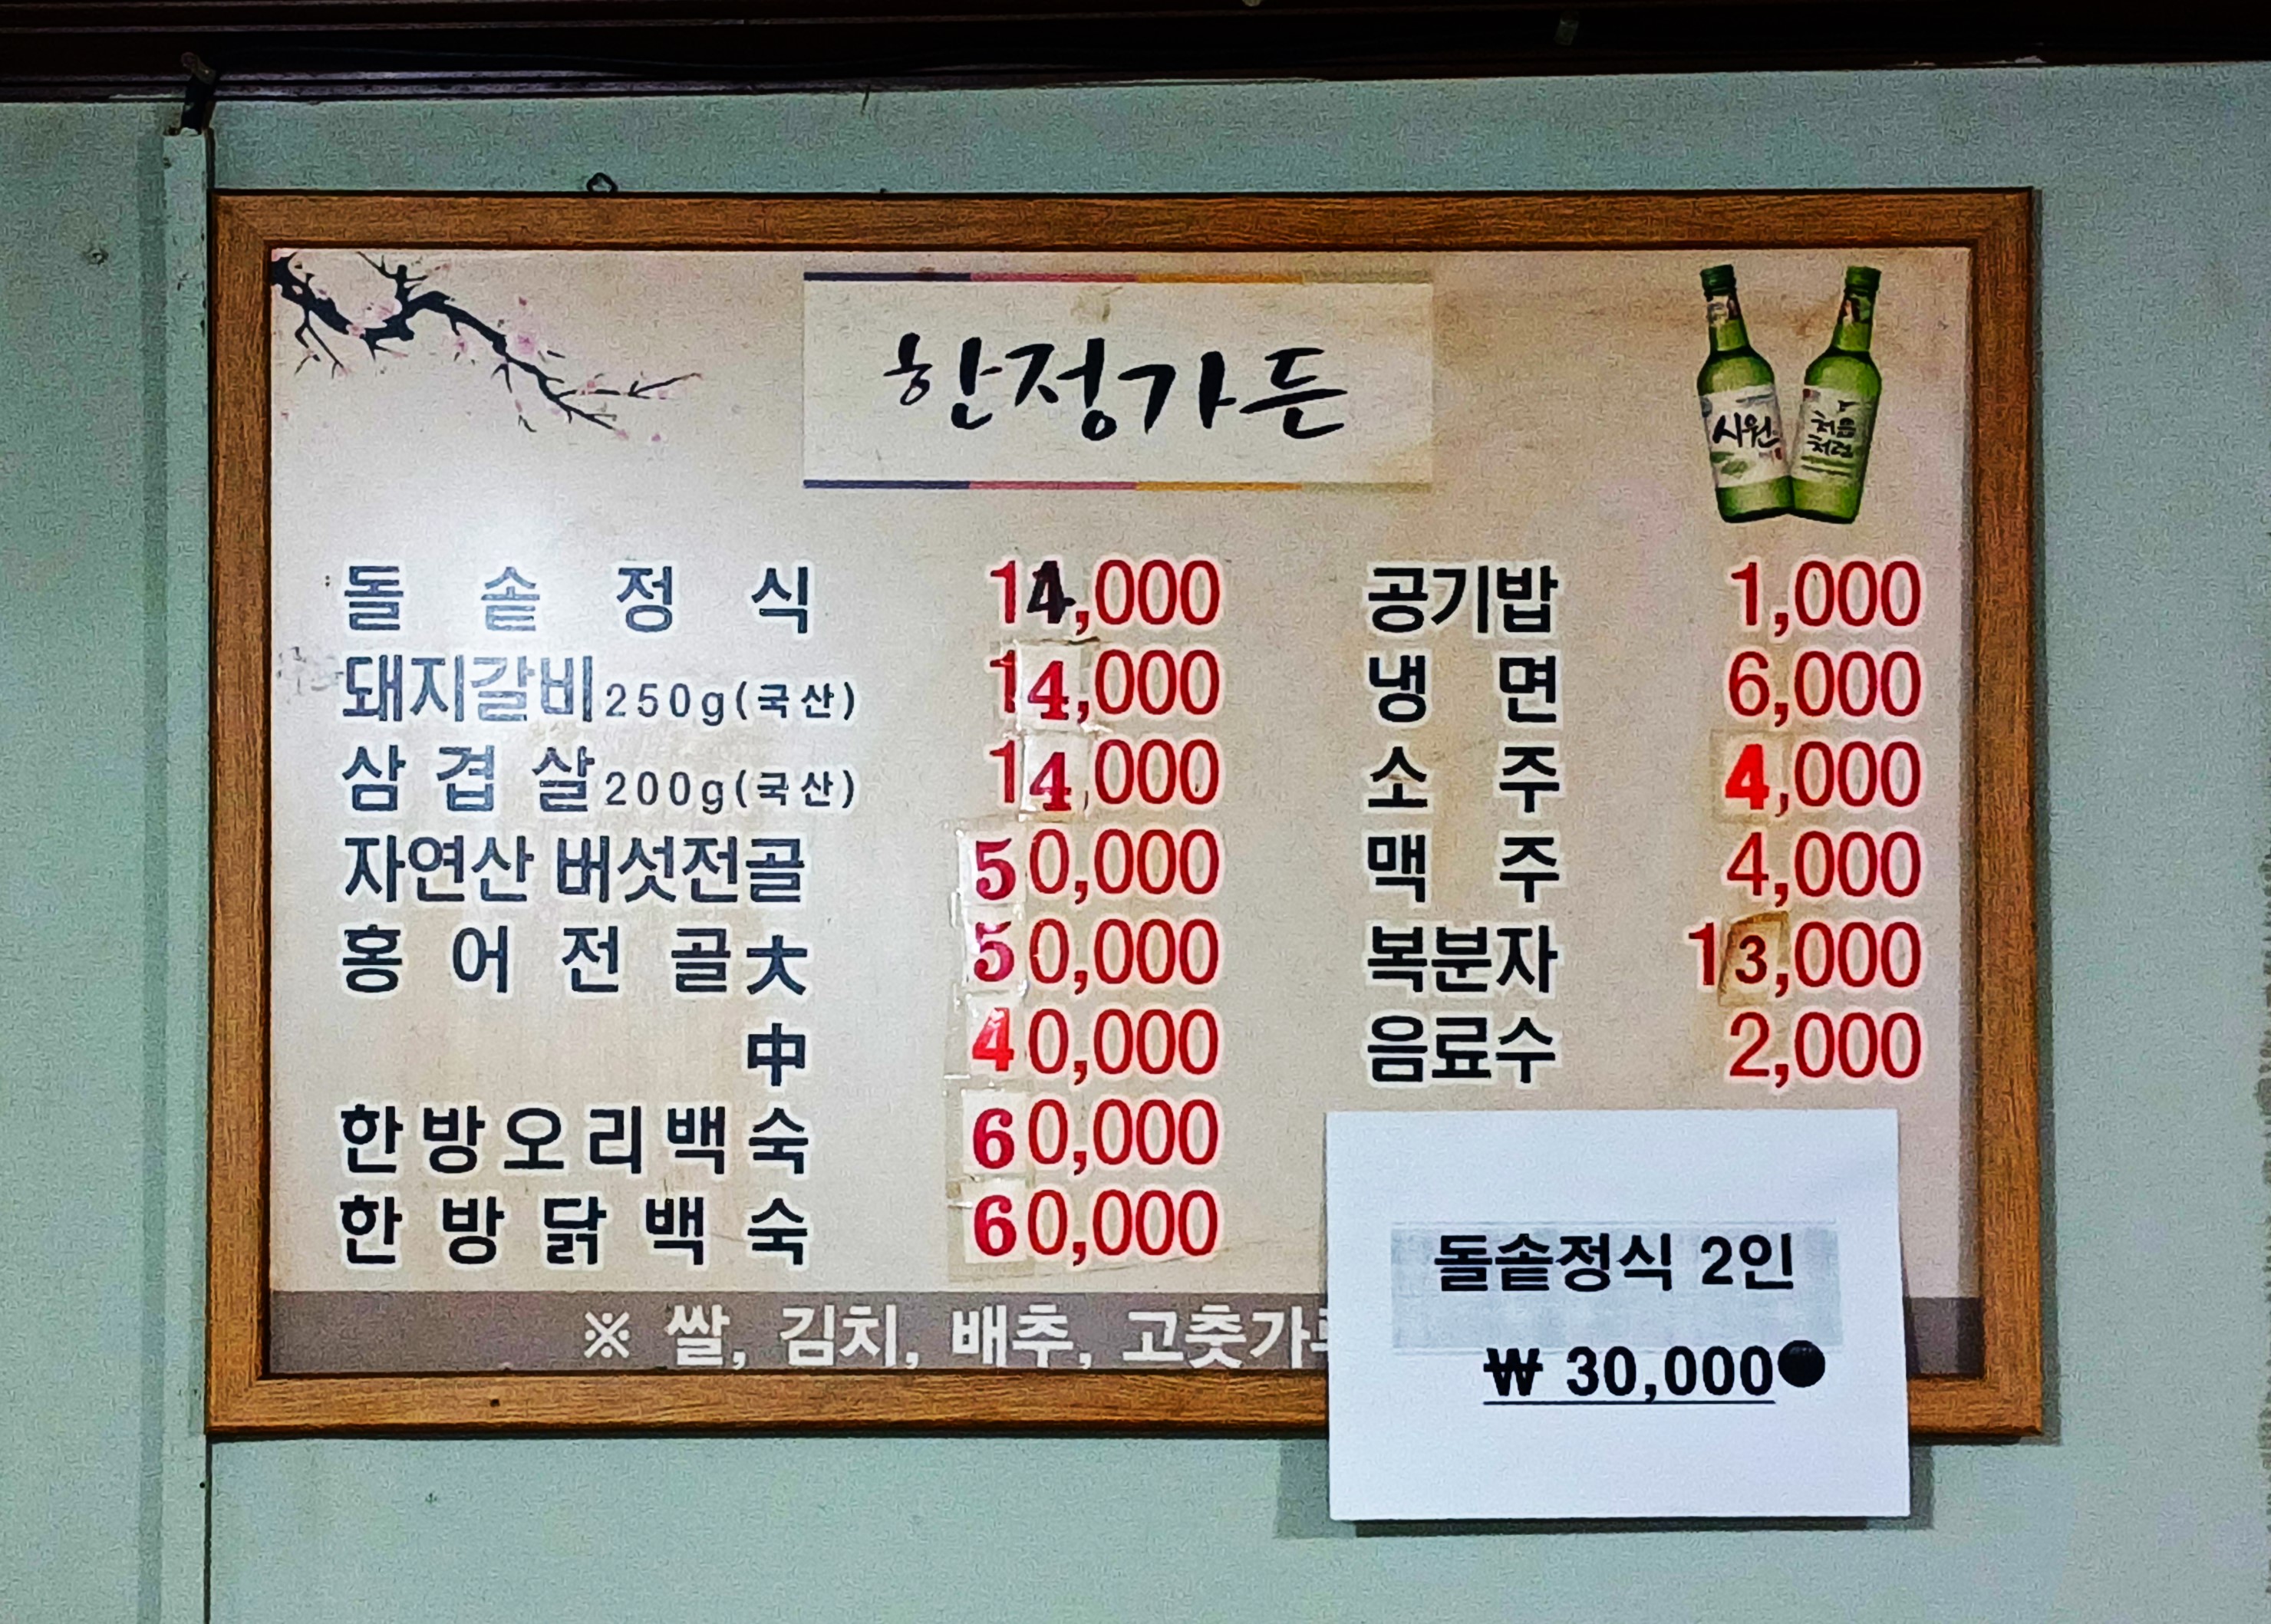 한정가든
시원
처음
처럼
돌솥정식 14,000
돼지갈비 250g(국산) 14,000
삼겹살 200g(국산) 14,000
자연산 버섯전골 50,000
홍어전골 大 50,000
中 40,000
한방오리백숙 60,000
한방닭백숙 60,000
공기밥 1,000
냉면 6,000
소주 4,000
맥주 4,000
복분자 13,000
음료수 2,000
※ 쌀, 김치, 배추, 고춧가
돌솥정식 2인
₩ 30,000